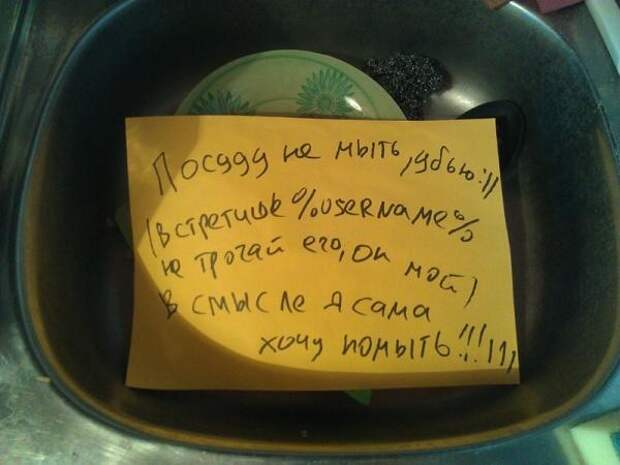 Посуду не мыть, убью!!!
(встретишь %username%
не трогай его, он мой)
В смысле я сама
хочу помыть!!!1111